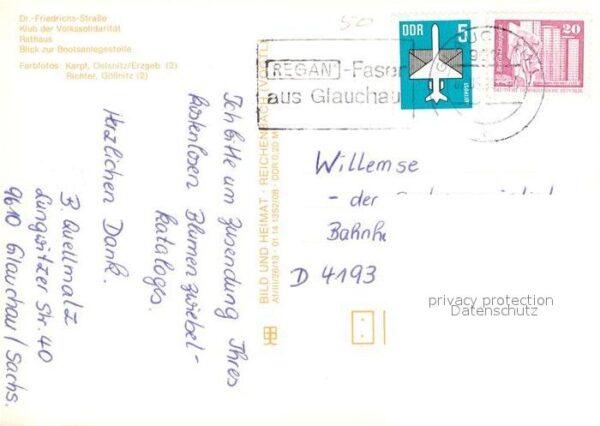 Dr.-Friedrichs-Straße
Klub der Volkssolidarität
Rathaus
Blick zur Bootsanlegestelle
Farbfotos: Karpf, Oelsnitz/Erzgeb. (2)
Richter, Gößnitz (2)
50
REGAN-Faser
aus Glauchau
DDR 5
LUFTPOST
20
Ich bitte um Zusendung Ihres
kostenlosen Blumenzwiebel-
kataloges.
Herzlichen Dank.
B. Quellmalz
Lungwitzer Str. 40
9610 Glauchau/Sachs.
BILD UND HEIMAT · REICHENBACH (VOGTL)
A1/III/26/13 · 01 14 1352/08 · DDR 0,20 M
Willemse
- der
Bahnh
D 4193
privacy protection
Datenschutz